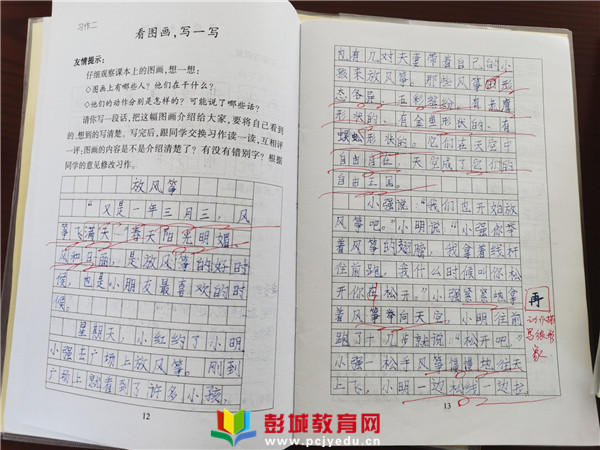 习作二
看图画，写一写
友情提示：
仔细观察课本上的图画，想一想：
◇图画上有哪些人？他们在干什么？
◇他们的动作分别是怎样的？可能说了哪些话？
请你写一段话，把这幅图画介绍给大家，要将自己看到
的、想到的写清楚。写完后，跟同学交换习作读一读，互相评
一评：图画的内容是不是介绍清楚了？有没有错别字？根据
同学的意见修改习作。
放风筝
“又是一年三月三，风
筝飞满天。”春天阳光明媚，
风和日丽，是放风筝的好时
候，也是小朋友最喜欢的时
候。
星期天，小红约了小明、
小强去广场上放风筝。刚到
广场上就看到了许多小孩，
12
内有几对夫妻带着自己的小
孩来放风筝。那些风筝形
态各异、五彩缤纷，有老鹰
形状的、有金鱼形状的、有
蜈蚣形状的。它们在天空中
自由自在，天空成了它们的
自由王国。
小强说：“我们也开始放
风筝吧。”小明说：“小强你举
着风筝的翅膀，我拿着线杆
往前跑，我什么时候叫你松
开你在松开。”小强紧紧地拿
再
着风筝举向天空。小明往前
跑了十几步就说：“松开吧。”
小强一松手风筝慢慢地往天
上飞，小明一边松线一边
13
彭城教育网
www.pcjyedu.cn